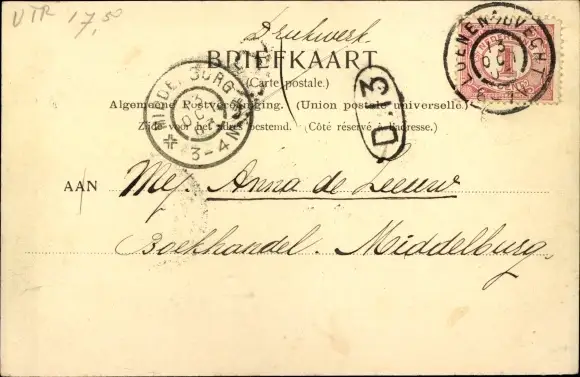 UTR 17,50
Drukwerk
BRIEFKAART
(Carte postale.)
Algemeene Postvereeniging. (Union postale universelle.)
Zijde voor het adres bestemd. (Côté réservé à l'adresse.)
MIDDELBURG
3-4N
D.13
LOENENA/DVECHT
13
1
AAN Mej. Anna de Leeuw
Boekhandel. Middelburg.